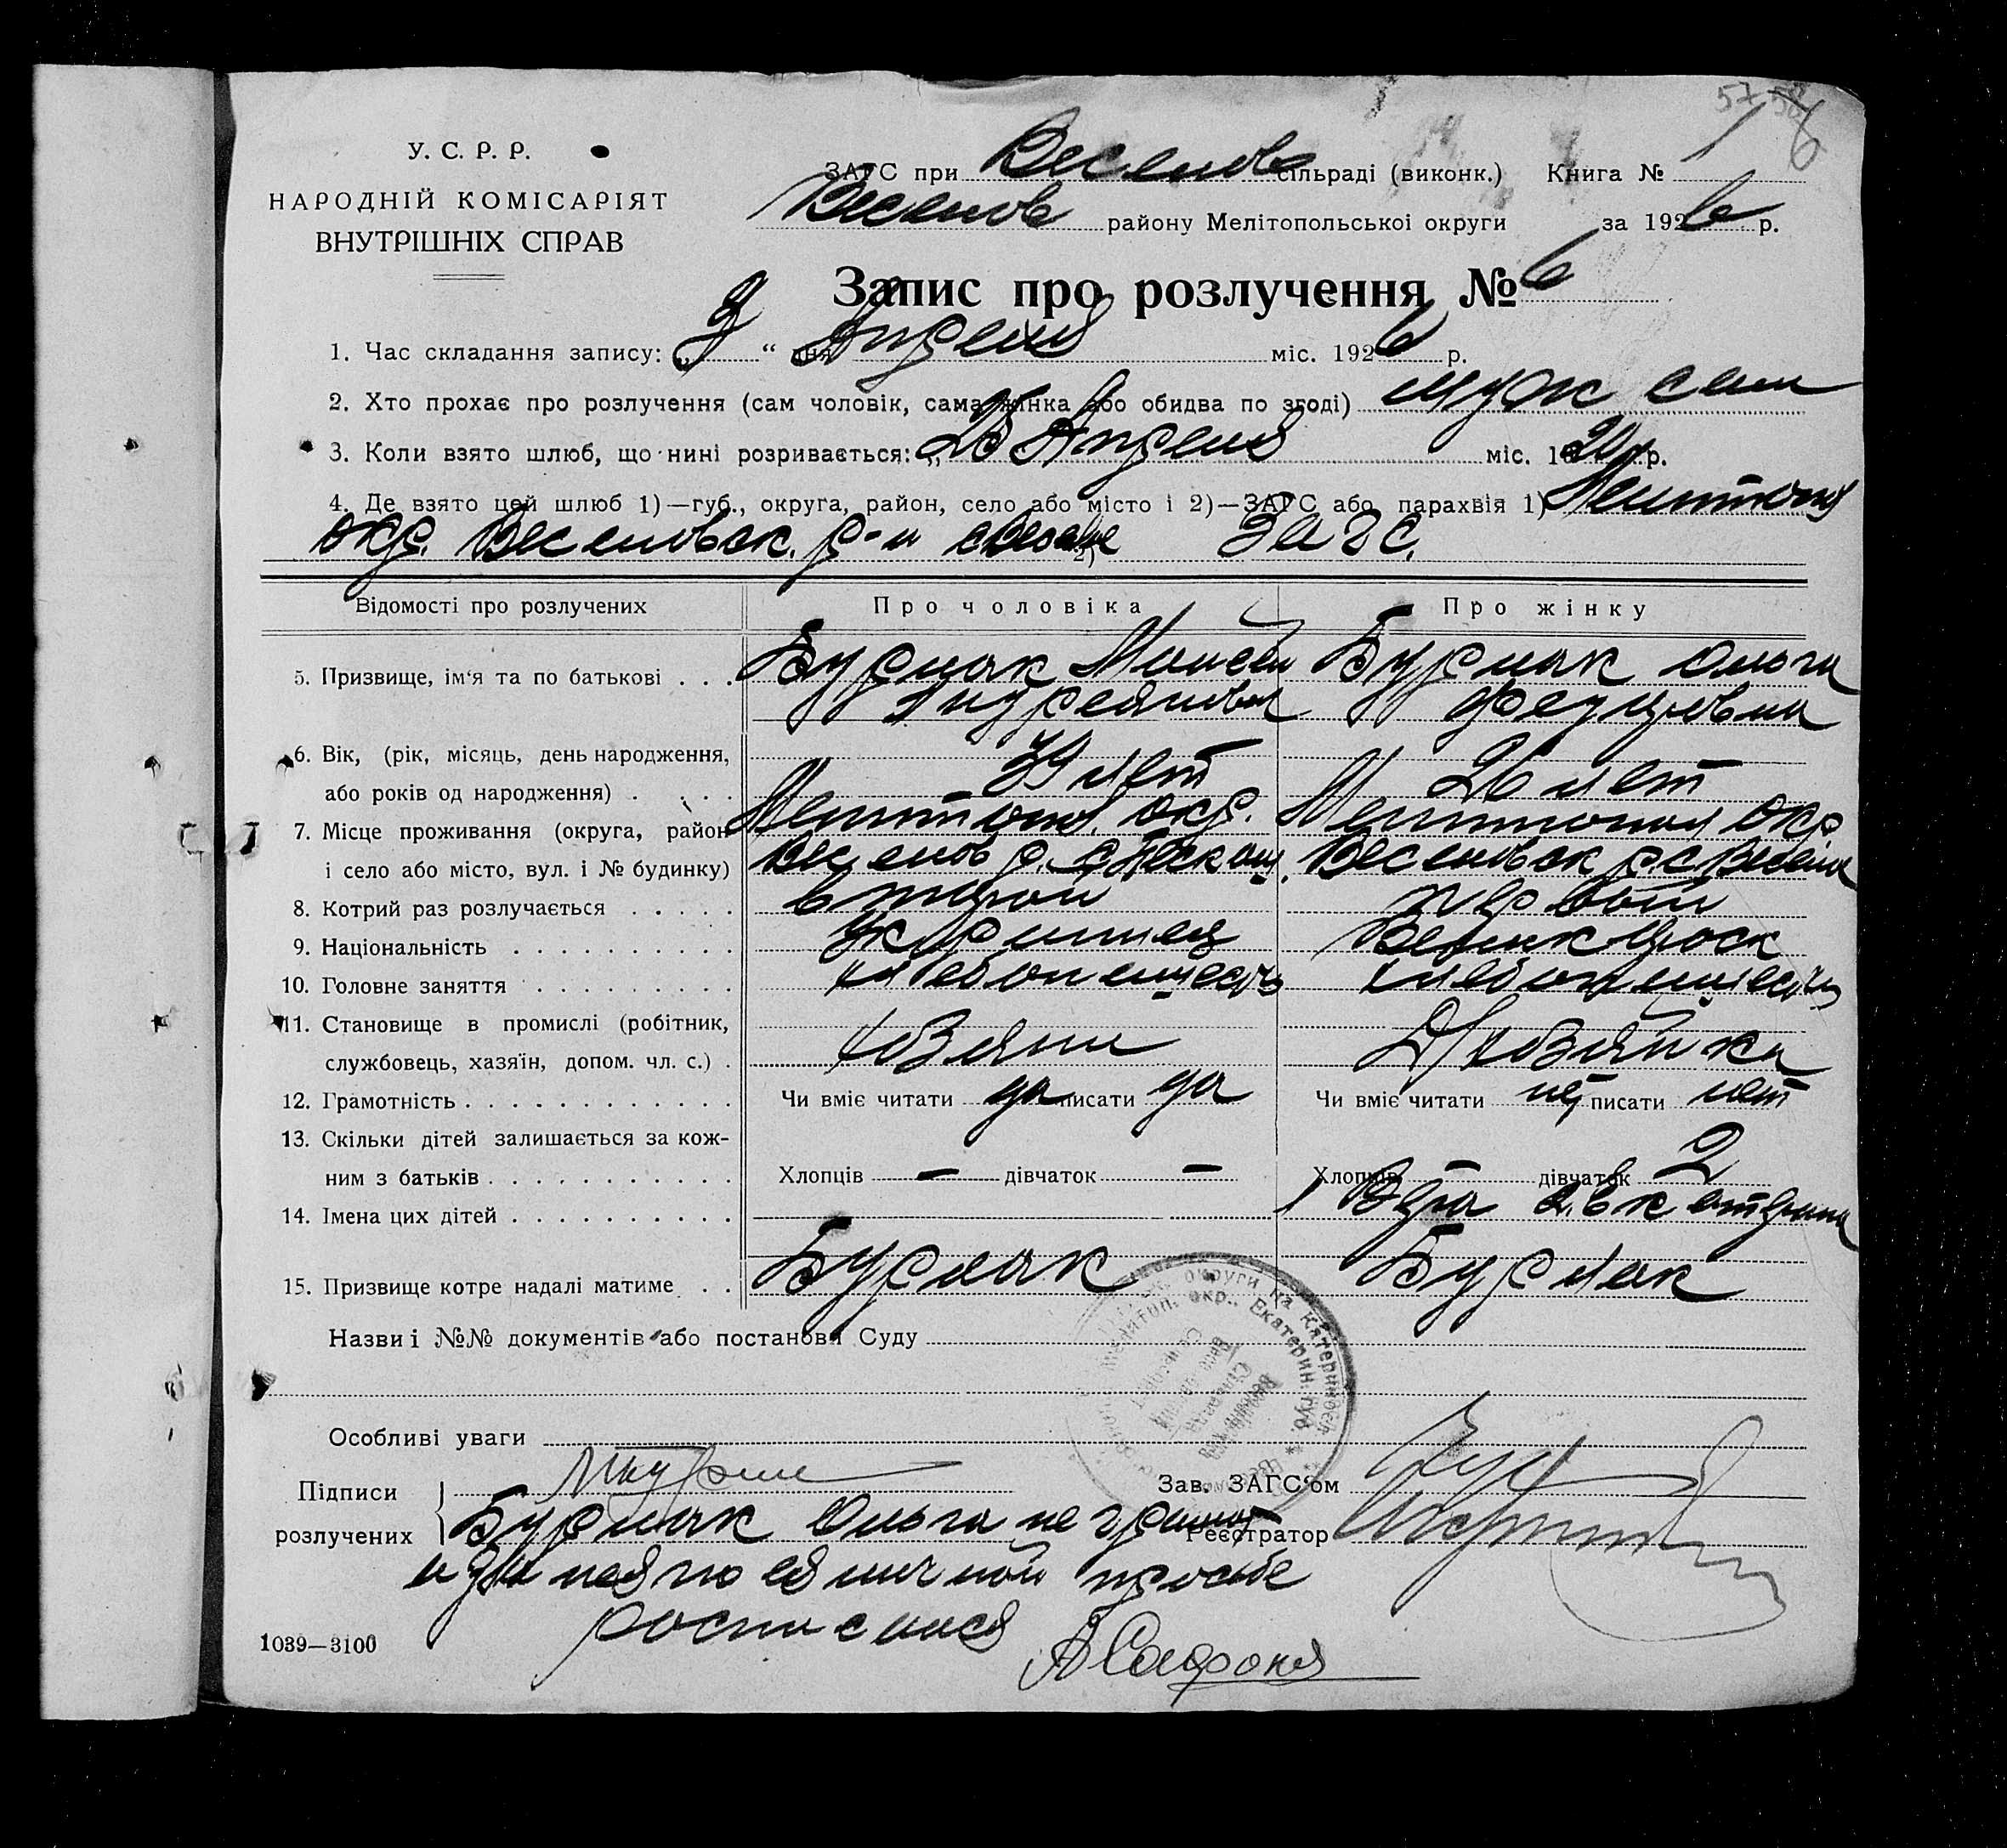 57 58
У. С. Р. Р.
НАРОДНІЙ КОМІСАРІЯТ
ВНУТРІШНІХ СПРАВ
ЗАГС при Веселов сільраді (виконк.) Книга № 1
Веселов району Мелітопольської округи за 1926 р.
Запис про розлучення № 6
1. Час складання запису: „ “ дня Апреля міс. 1926 р.
2. Хто прохає про розлучення (сам чоловік, сама жінка або обидва по згоді) муж сам
3. Коли взято шлюб, що нині розривається: „ Апреля міс. 1920 р.
4. Де взято цей шлюб 1)—губ., округа, район, село або місто і 2)—ЗАГС або парахвія 1) Мелитопол
окр. Веселовск. р-н 2) ЗАГС.
Відомості про розлучених Про чоловіка Про жінку
5. Призвище, ім‘я та по батькові . . . Бурлак Моисей Бурлак Ольга
Андреянович
6. Вік, (рік, місяць, день народження,
або років од народження) . . . . лет 26 лет
7. Місце проживання (округа, район Мелитопол. окр. Мелитопол окр
і село або місто, вул. і № будинку) Веселов р. Веселовск р. с Веселое
8. Котрий раз розлучається . . . . . второй первый
9. Національність . . . . . . . . . . Украинец Великоросс
10. Головне заняття . . . . . . . . . хлебопашество хлебопашество
11. Становище в промислі (робітник,
службовець, хазяїн, допом. чл. с.) . хозяин Д/хозяйка
12. Грамотність . . . . . . . . . . . . Чи вміє читати да писати да Чи вміє читати нет писати нет
13. Скільки дітей залишається за кож-
ним з батьків . . . . . . . . . . . Хлопців — дівчаток — Хлопців — дівчаток 2
14. Імена цих дітей . . . . . . . . . . 1 Вера 2.
15. Призвище котре надалі матиме . . Бурлак Бурлак
Назви і №№ документів або постанови Суду
Особливі уваги
Підписи
розлучених
Зав. ЗАГС‘ом
Бурлак Ольга неграмот Реєстратор
и за нея по ея личной просьбе
росписался
1039—3100